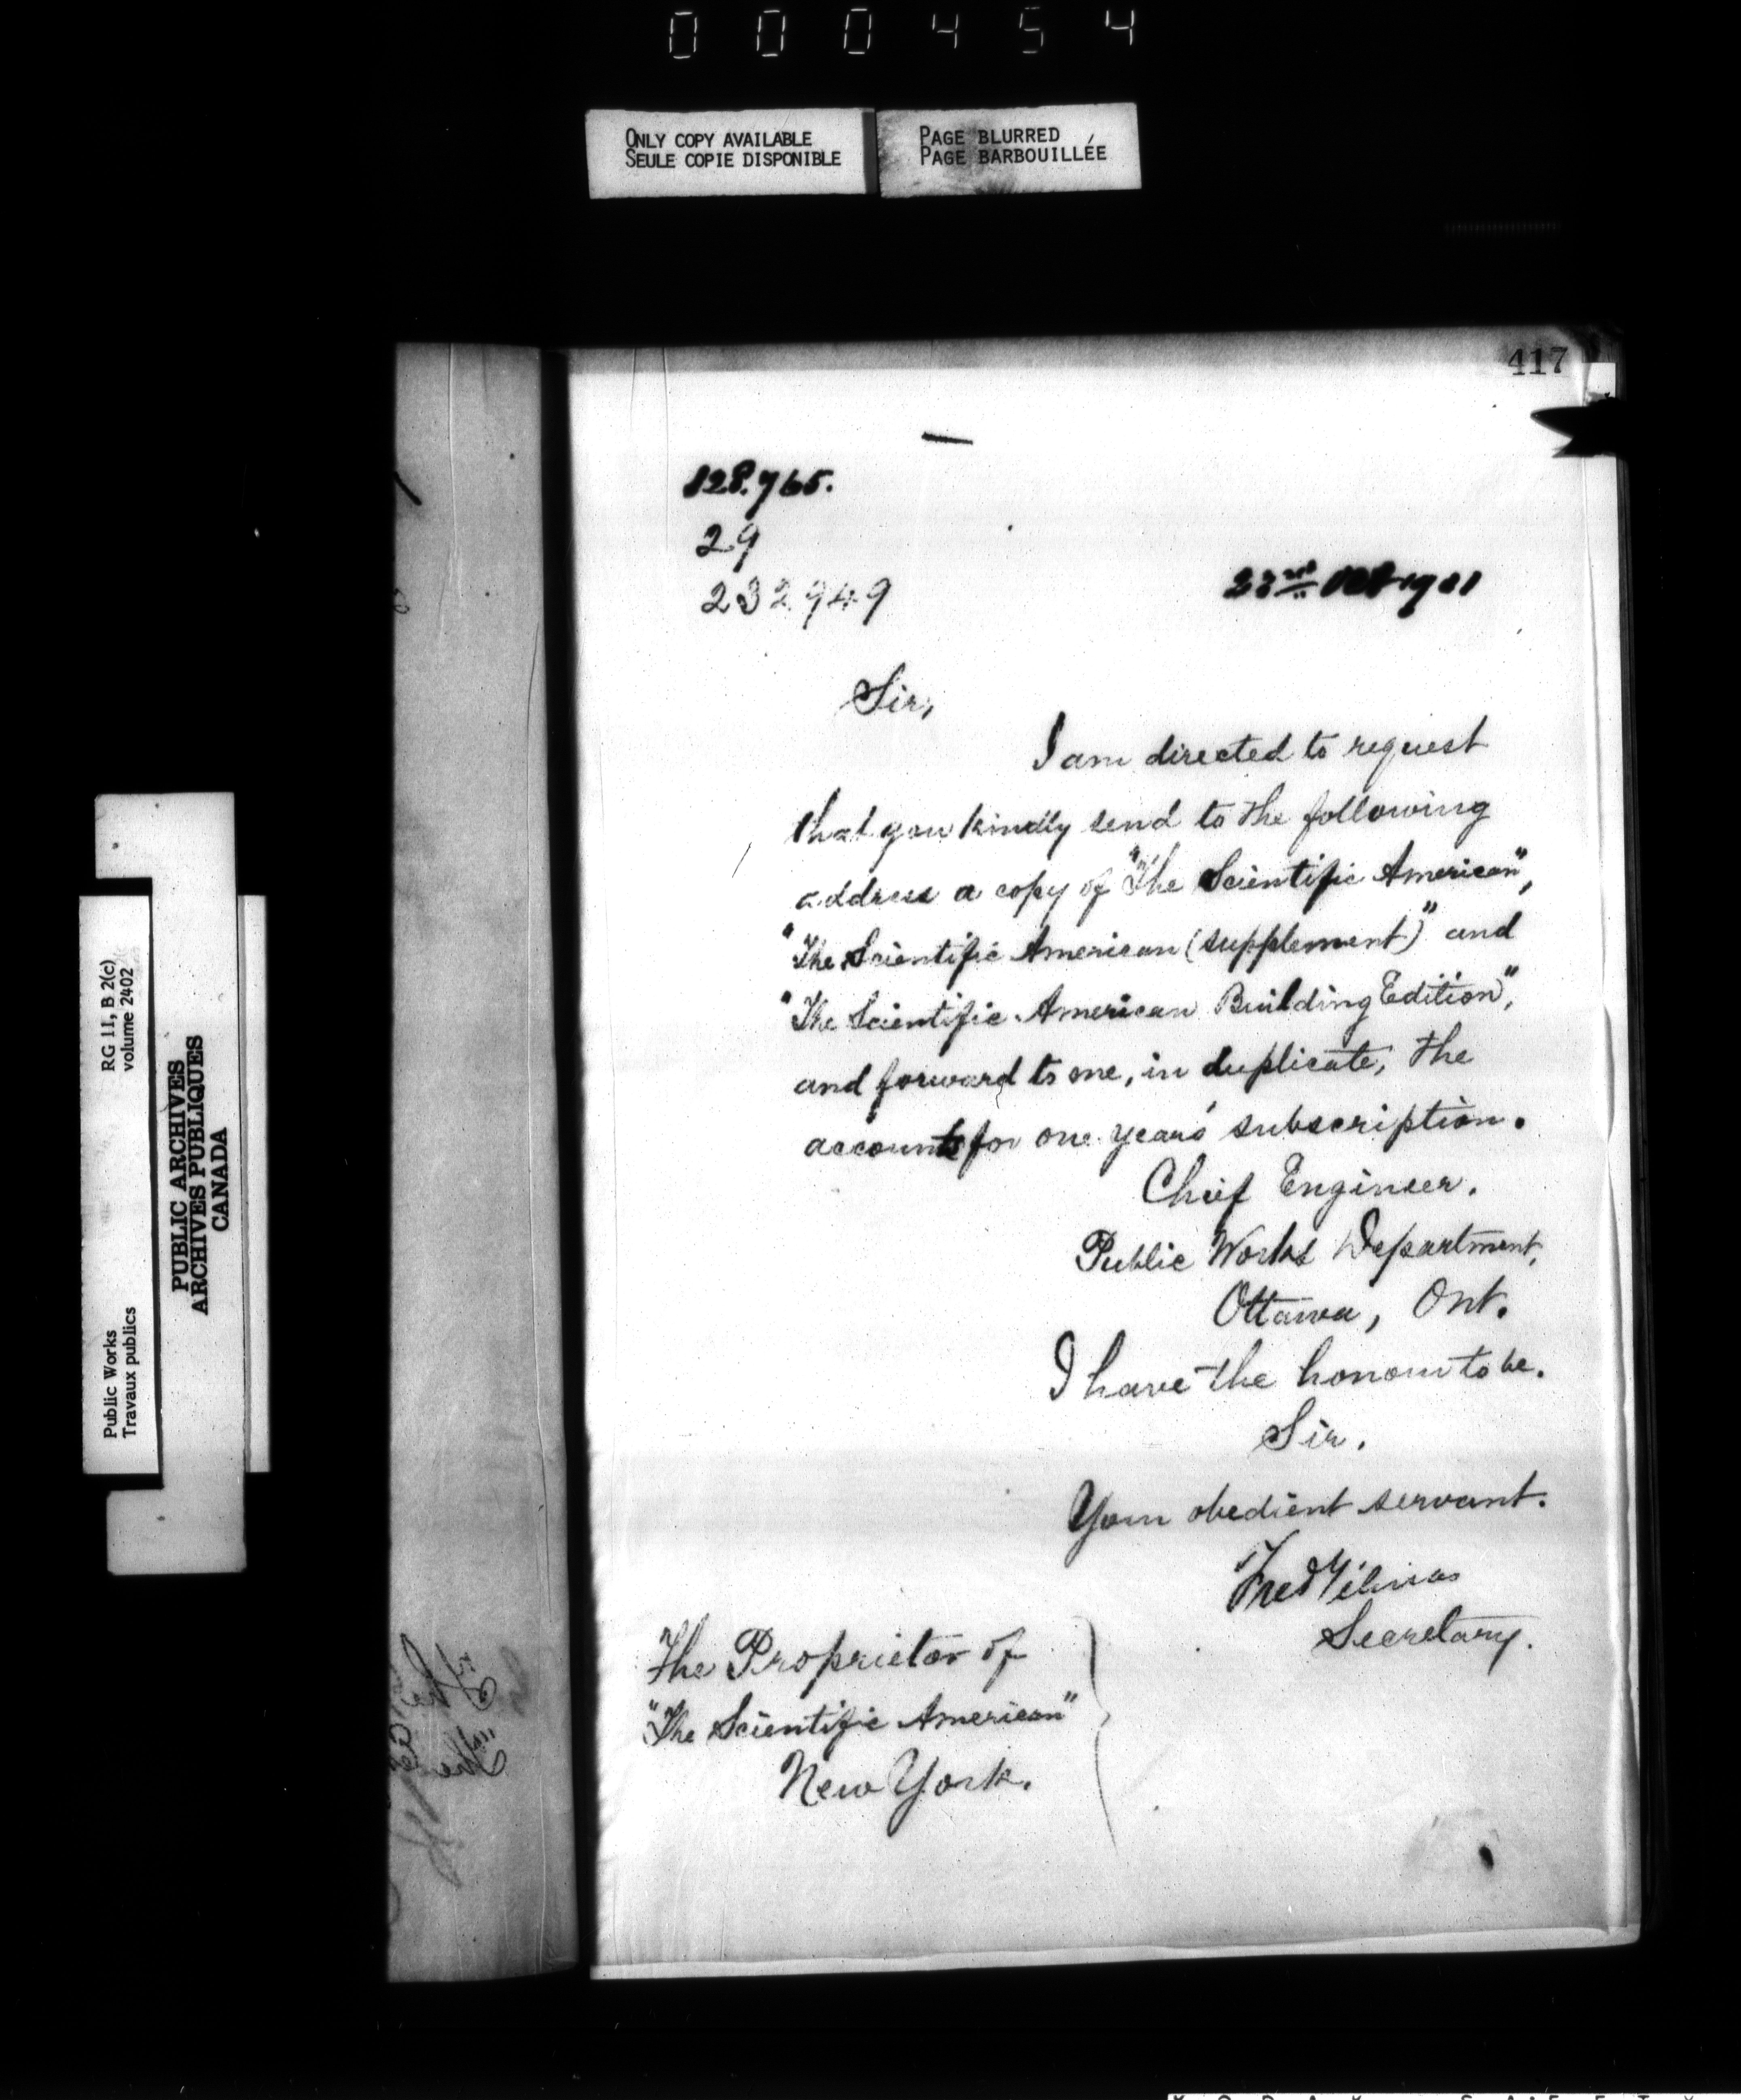 000454
ONLY COPY AVAILABLE
SEULE COPIE DISPONIBLE
PAGE BLURRED
PAGE BARBOUILLÉE
417
128.765.
29
232949
23rd 1901
Sir,
I am directed to request
that you kindly send to the following
address a copy of "The Scientific American",
"The Scientific American (supplement)" and
"The Scientific American Building Edition",
and forward to me, in duplicate, the
accounts for one years' subscription.
Chief Engineer.
Public Works Department,
Ottawa, Ont.
I have the honour to be.
Sir.
Your obedient servant.
Fred Gélinas
Secretary.
The Proprietor of
"The Scientific American"
New York.
Public Works
Travaux publics
RG 11, B 2(c)
volume 2402
PUBLIC ARCHIVES
ARCHIVES PUBLIQUES
CANADA